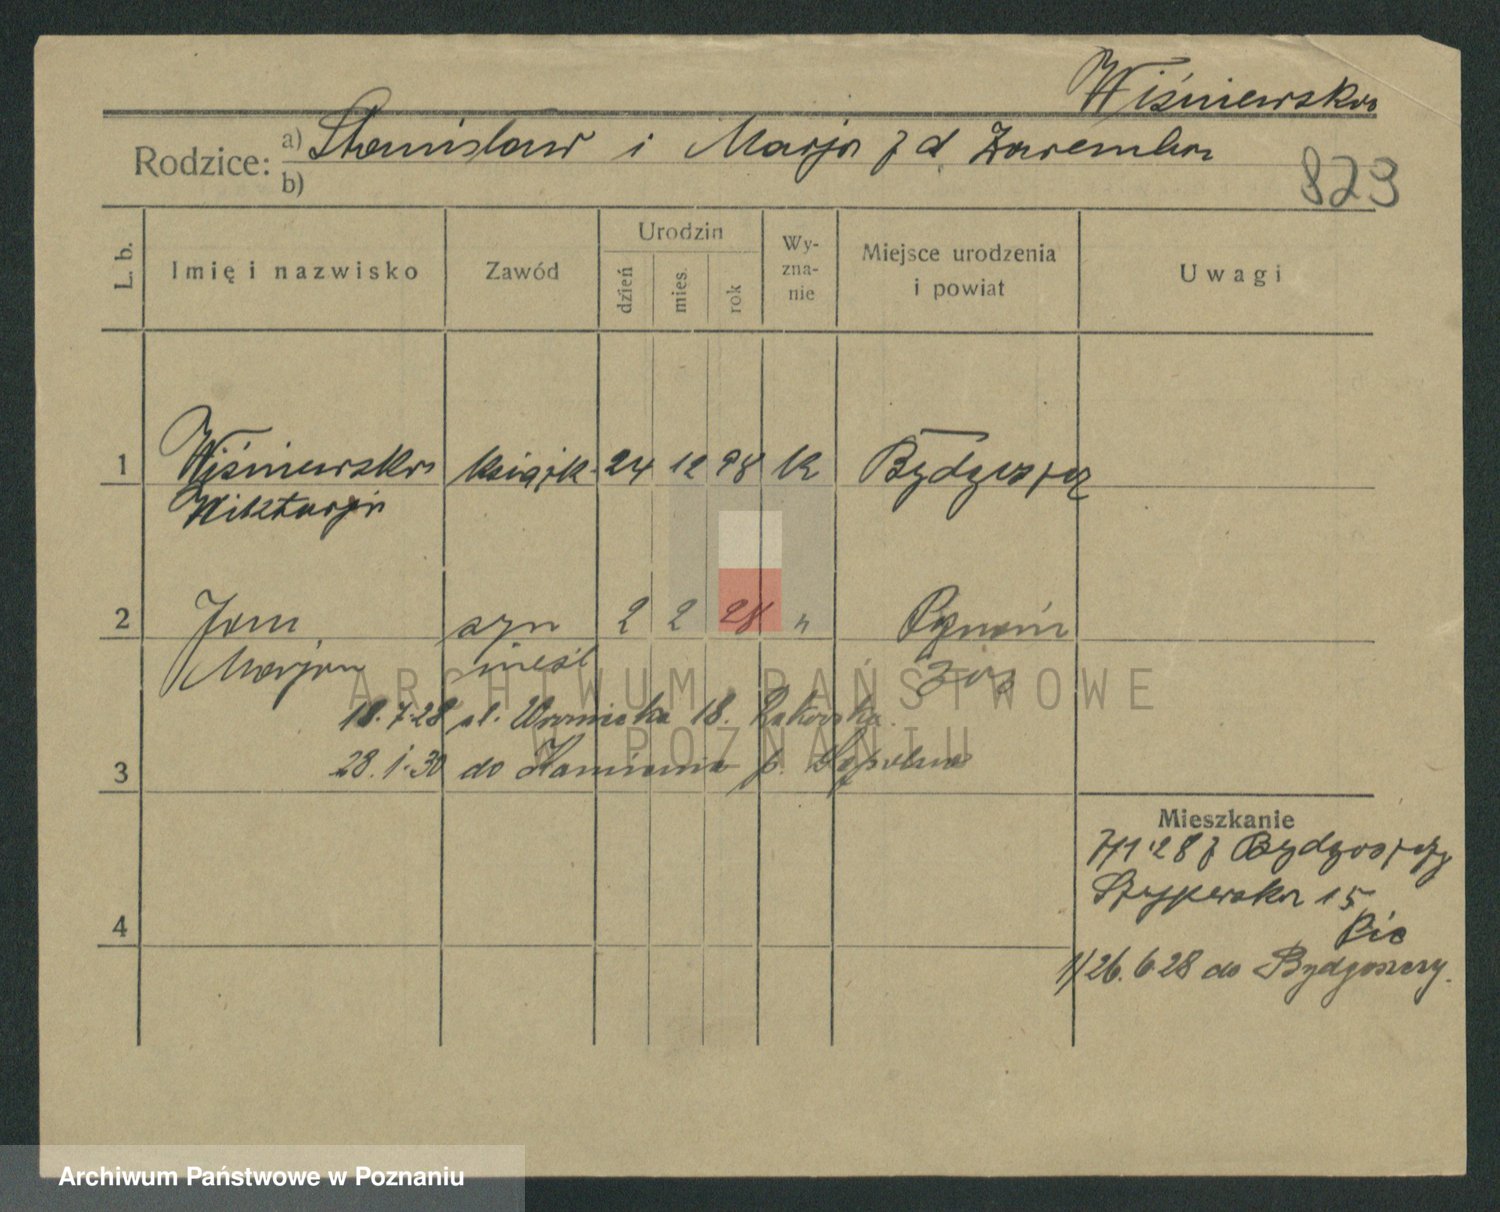 Wiśniewska
Rodzice: a) Stanisław i Marja z d. Zaremba
b)
823
L. b. Imię i nazwisko Zawód Urodzin dzień mies. rok Wy-zna-nie Miejsce urodzenia i powiat Uwagi
1 Wiśniewska książk. 24 12 98 k Bydgoszcz
Wiktorja
2 Jan syn 2 2 28 " Poznań
Marjan nieśl
18.7.28 ul. Wroniecka 18.
3 28.1.30 do Kamienia p. Sępolno
Mieszkanie
7/1 28 z Bydgoszczy
15
4
1/26.6.28 do Bydgoszczy.
ARCHIWUM PAŃSTWOWE
W POZNANIU
Archiwum Państwowe w Poznaniu